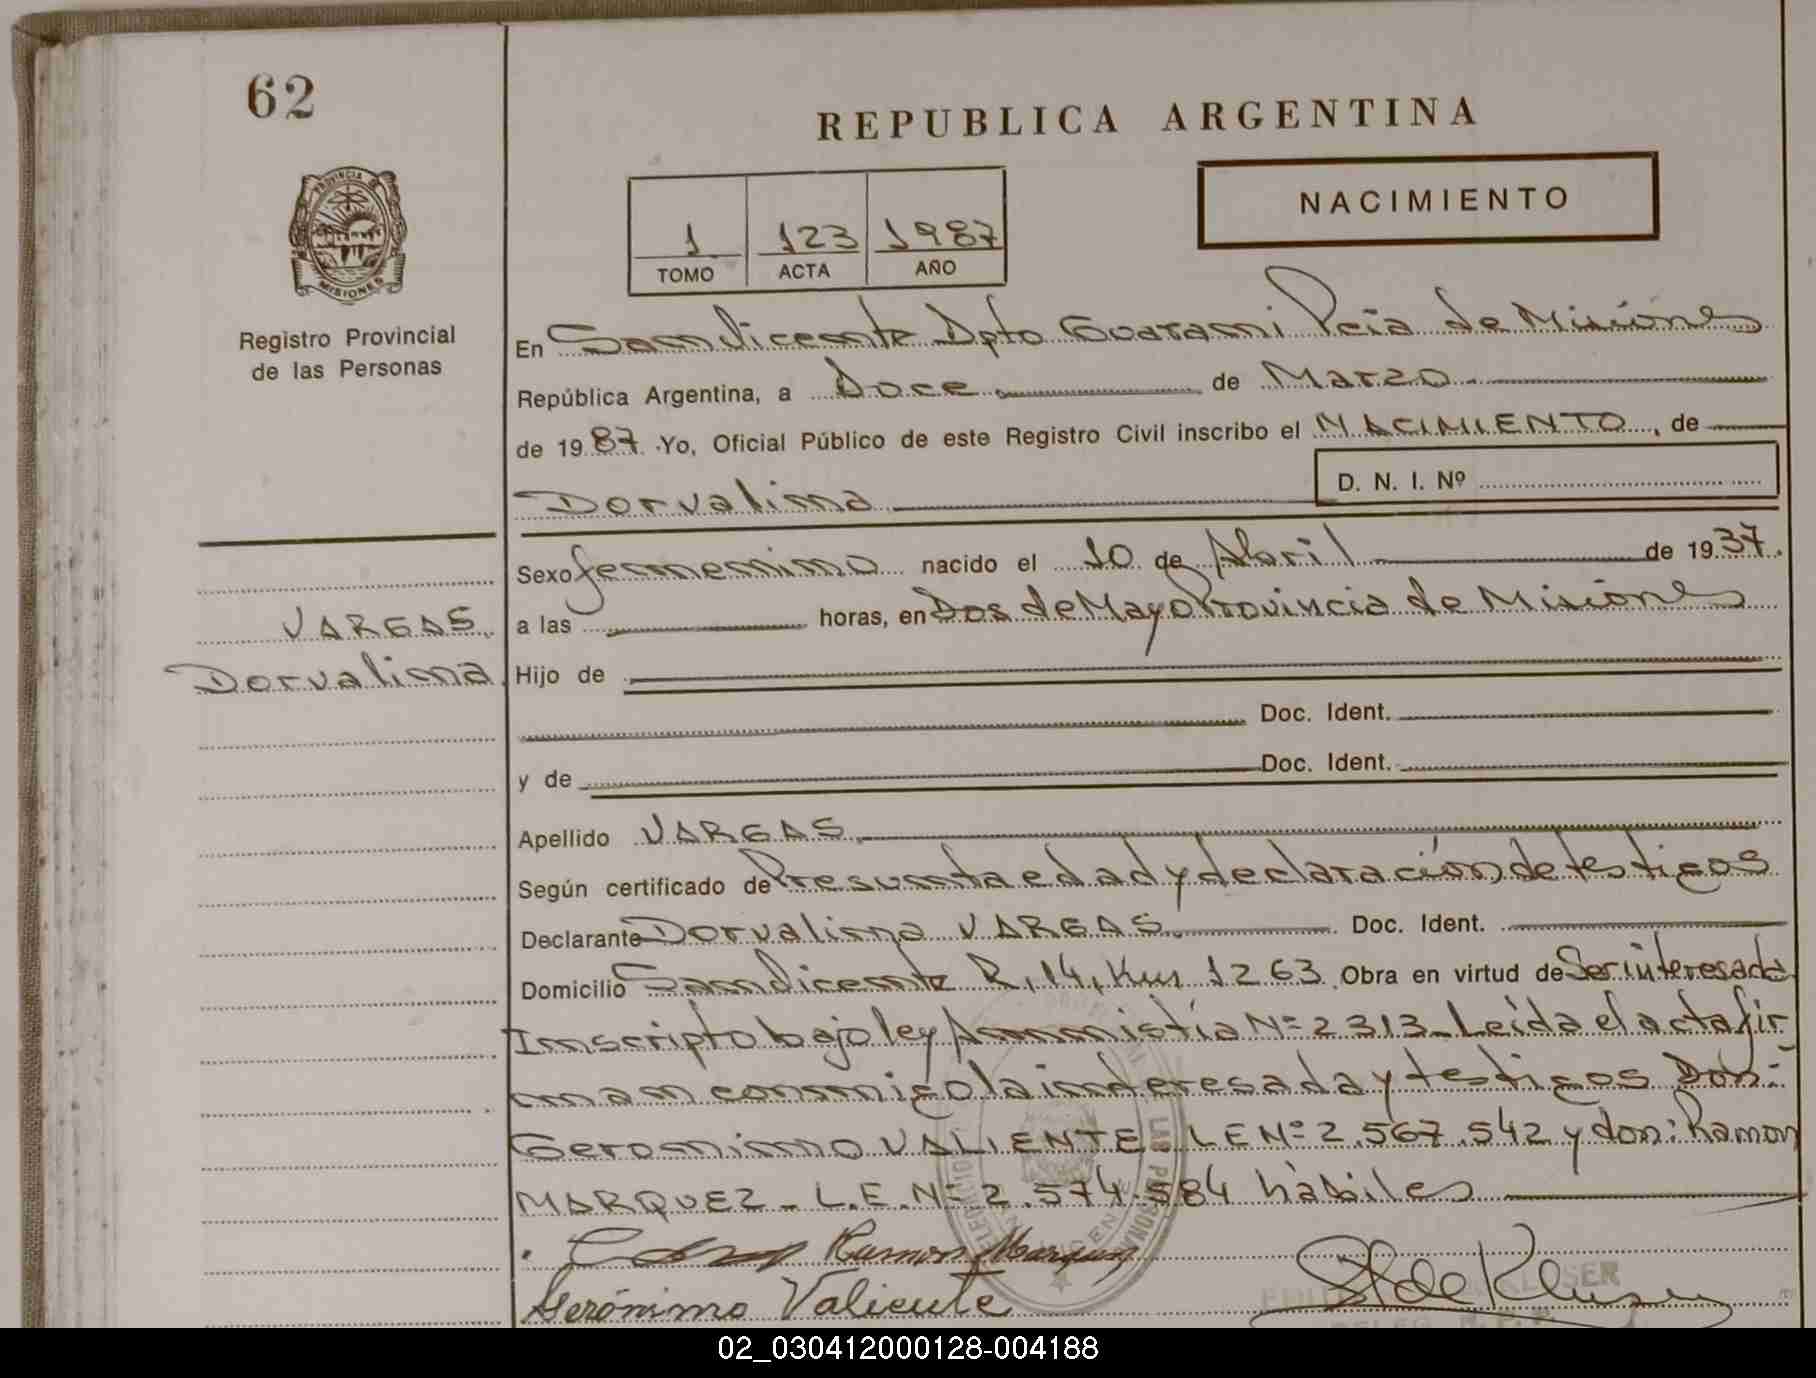 62
REPUBLICA ARGENTINA
PROVINCIA DE
MISIONES
Registro Provincial
de las Personas
1 123 1987
TOMO ACTA AÑO
NACIMIENTO
En San Vicente Dpto Guarani Pcia de Misiónes
República Argentina, a Doce de Marzo
de 1987 Yo, Oficial Público de este Registro Civil inscribo el NACIMIENTO, de
Dorvalina D. N. I. Nº
Sexo femenino nacido el 10 de Abril de 1937.
VARGAS
Dorvalina
a las horas, en Dos de Mayo Provincia de Misiónes
Hijo de
Doc. Ident.
y de Doc. Ident.
Apellido VARGAS
Según certificado de Presunta edad y declaración de testigos
Declarante Dorvalina VARGAS. Doc. Ident.
Domicilio San Vicente R, 14, Km 1263 Obra en virtud de Ser interesada
Inscripto bajo ley Ammistía Nº 2313_ Leída el acta fir
man conmigo la interesada y testigos Don:
Geronimo VALIENTE LE Nº 2.567.542 y don: Ramon
MARQUEZ_ L.E. Nº 2.574.584 hàbiles
Ramon Marquez
Gerónimo Valiente
02_030412000128-004188